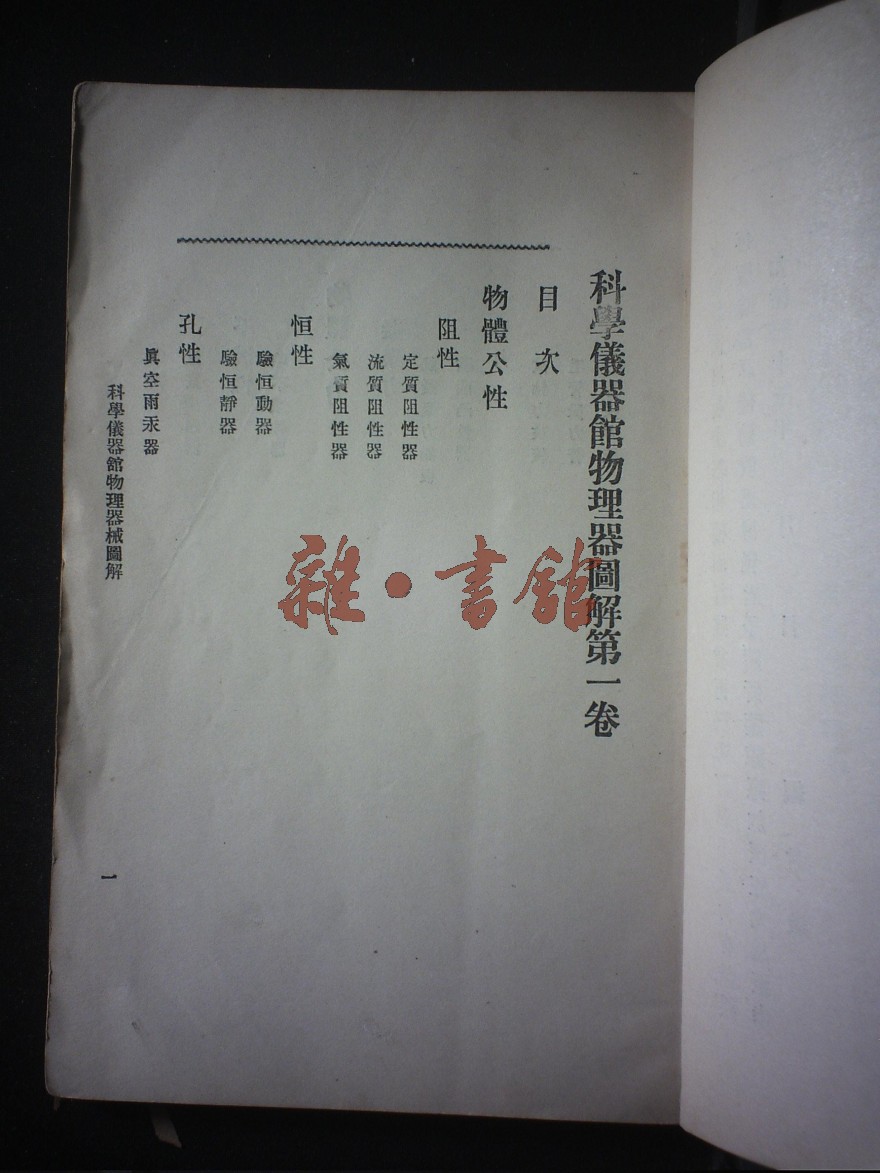 科學儀器館物理器圖解第一卷
目次
物體公性
阻性
定質阻性器
流質阻性器
氣質阻性器
恒性
驗恒動器
驗恒靜器
孔性
眞空雨汞器
科學儀器館物理器械圖解
一
雜·書館